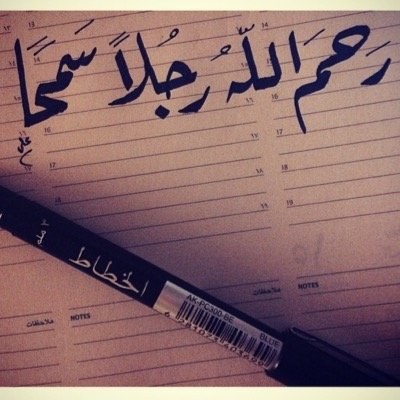 رَحِمَ اللّٰهُ رَجُلاً سَمحًا
الخطاط
AK-PC300-BE
BLUE
NOTES
ملاحظات
NOTES
ملاحظات